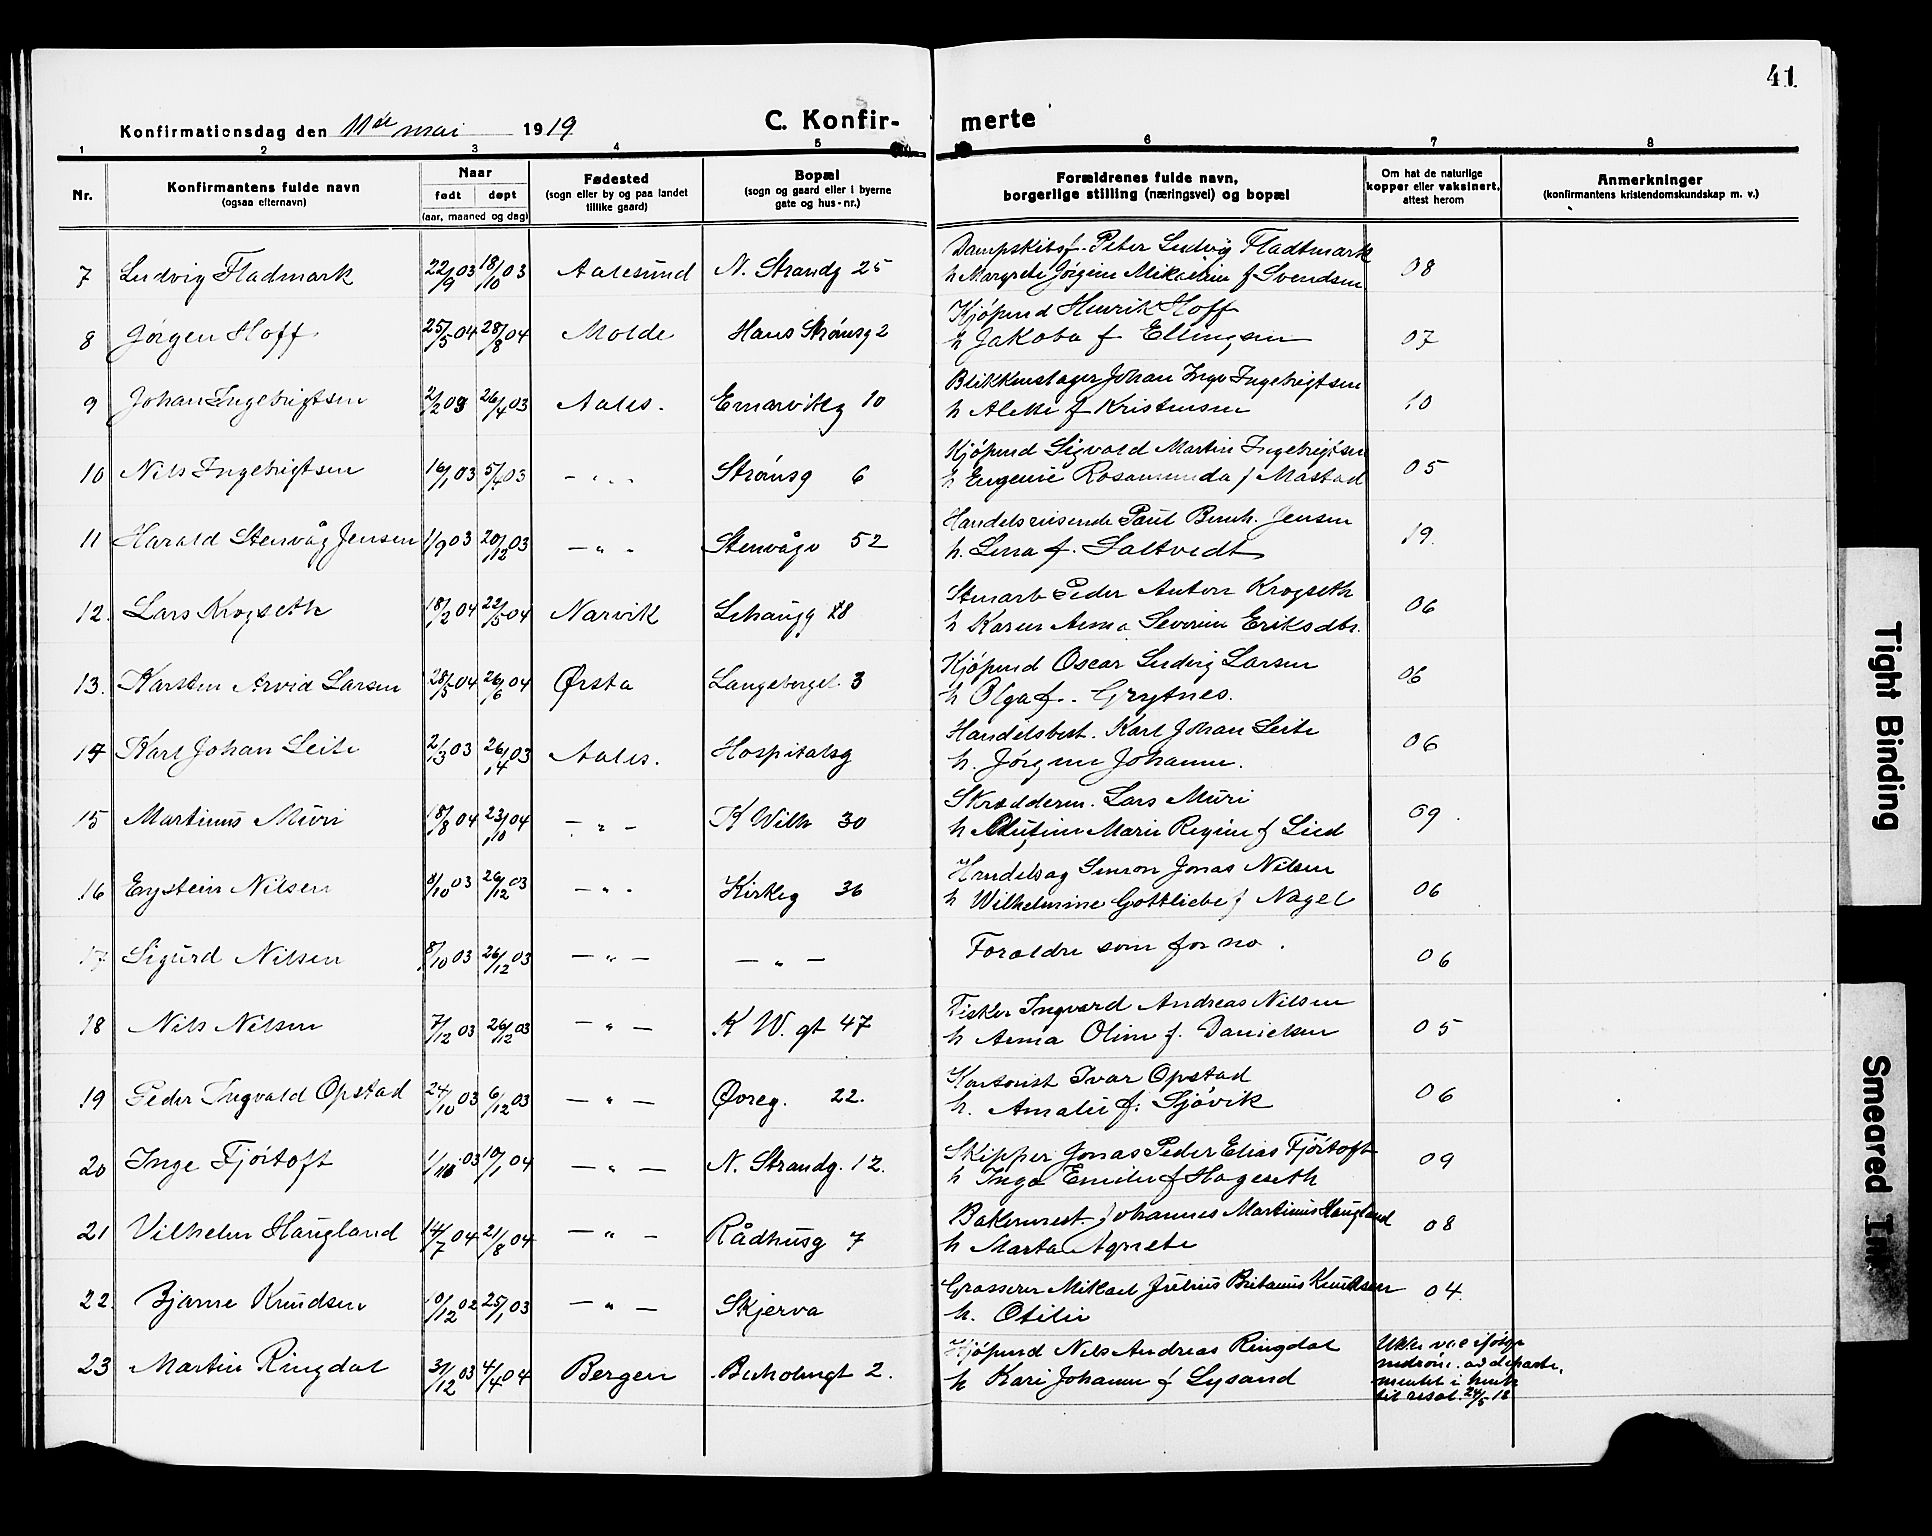 41
Konfirmationsdag den 11de mai 1919 C. Konfir- merte
1 2 3 4 5 6 7 8
Nr. Konfirmantens fulde navn (ogsaa efternavn) Naar født døpt (aar, maaned og dag) Fødested (sogn eller by og paa landet tillike gaard) Bopæl (sogn og gaard eller i byerne gate og hus-nr.) Forældrenes fulde navn, borgerlige stilling (næringsvei) og bopæl Om hat de naturlige kopper eller vaksinert, attest herom Anmerkninger (konfirmantens kristendomskundskap m. v.)
7 Ludvig Fladmark 22/9 03 18/10 03 Aalesund N. Strandg 25 Dampskibsf. Peter Ludvig Fladtmark
h Margrete Jørgine Mikaeline f Svendsen 08
8 Jørgen Hoff 25/5 04 28/8 04 Molde Hans Strömsg 2 Kjøpmd Henrik Hoff
h Jakoba f Ellingsen 07
9 Johan Ingebrigtsen 2/2 03 26/4 03 Aales. Einarvikg 10 Blikkenslager Johan Inge Ingebrigtsen
h Alette f Kristensen 10
10 Nils Ingebrigtsen 16/1 03 5/4 03 - " - Strömsg 6 Kjøpmd Sigvald Martin Ingebrigtsen
h Eugenie Rosamunda f Måstad 05
11 Harald Stenvåg Jensen 1/9 03 20/12 03 - " - Stenvågv 52 Handelsreisende Paul Bernh. Jensen
h. Lena f. Saltvedt 19.
12. Lars Krogseth 18/2 04 22/5 04 Narvik Lihaugg 18 Stenarb Peder Anton Krogseth
h Karen Anna Severine Eriksdtr. 06
13. Karsten Arvid Larsen 28/5 04 26/6 04 Ørsta Langeberget 3 Kjøpmd Oscar Ludvig Larsen
h Olga f. Grytnes. 06
14 Karl Johan Leite 2/3 03 26/4 03 Aales. Hospitalsg Handelsbest. Karl Johan Leite
h. Jörgine Johanne. 06
15 Martinus Muri 18/8 04 23/10 04 - " - K Wilh 30 Skrædderm. Lars Muri
h Marie Regine f Lied 09.
16 Eystein Nilsen 8/10 03 26/12 03 - " - Kirkeg 36 Handelsag Simon Jonas Nilsen
h Wilhelmine Gottliebe f Nagel 06
17 Sigurd Nilsen 8/10 03 26/12 03 - " - - " - Forældre som for no. 06
18 Nils Nilsen 7/12 03 26/12 03 - " - K W. gt 47 Fisker Ingvard Andreas Nilsen
h Anna Oline f. Danielsen 05
19 Peder Ingvald Opstad 24/10 03 6/12 03 - " - Øvreg. 22. Kontorist Ivar Opstad
h. Amalie f. Sjövik 06
20 Inge Fjörtoft 1/10 03 10/1 04 - " - N. Strandg. 12. Skipper Jonas Peder Elias Fjörtoft
h Inga Emilie f Hageseth 09
21 Vilhelm Haugland 14/7 04 21/8 04 - " - Rådhusg 7 Bakermest. Johannes Martinius Haugland
h Marta Agnete 08
22. Bjarne Knudsen 10/12 02 25/1 03 - " - Skjerva Grosserer Mikael Julius Knudsen
h. Otilie 04.
23 Martin Ringdal 31/12 03 4/4 04 Bergen Buholmgt 2. Kjøpmd Nils Andreas Ringdal
h Kari Johanne f Lysand Ikke vac ifølge
av departe-
mentet i henh
til resol. 24/5 18
Tight Binding
Smeared Ink